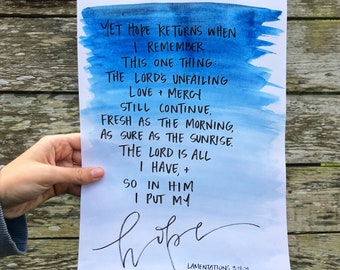 YET HOPE RETURNS WHEN
I REMEMBER
THIS ONE THING:
THE LORD'S UNFAILING
LOVE + MERCY
STILL CONTINUE,
FRESH AS THE MORNING,
AS SURE AS THE SUNRISE.
THE LORD IS ALL
I HAVE, +
SO IN HIM
I PUT MY
hope
LAMENTATIONS